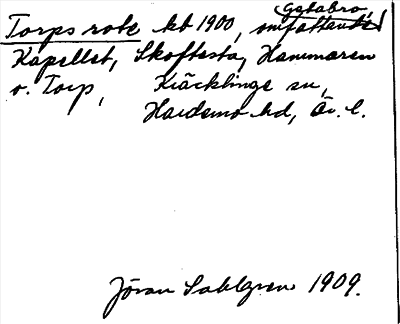 Torps rote kb 1900, omfattande Gatabro,
Kapellet, Skoftesta, Hammaren
o. Torp, Kräcklinge sn,
Hardemo hd, Ör. l.
Jöran Sahlgren 1909.